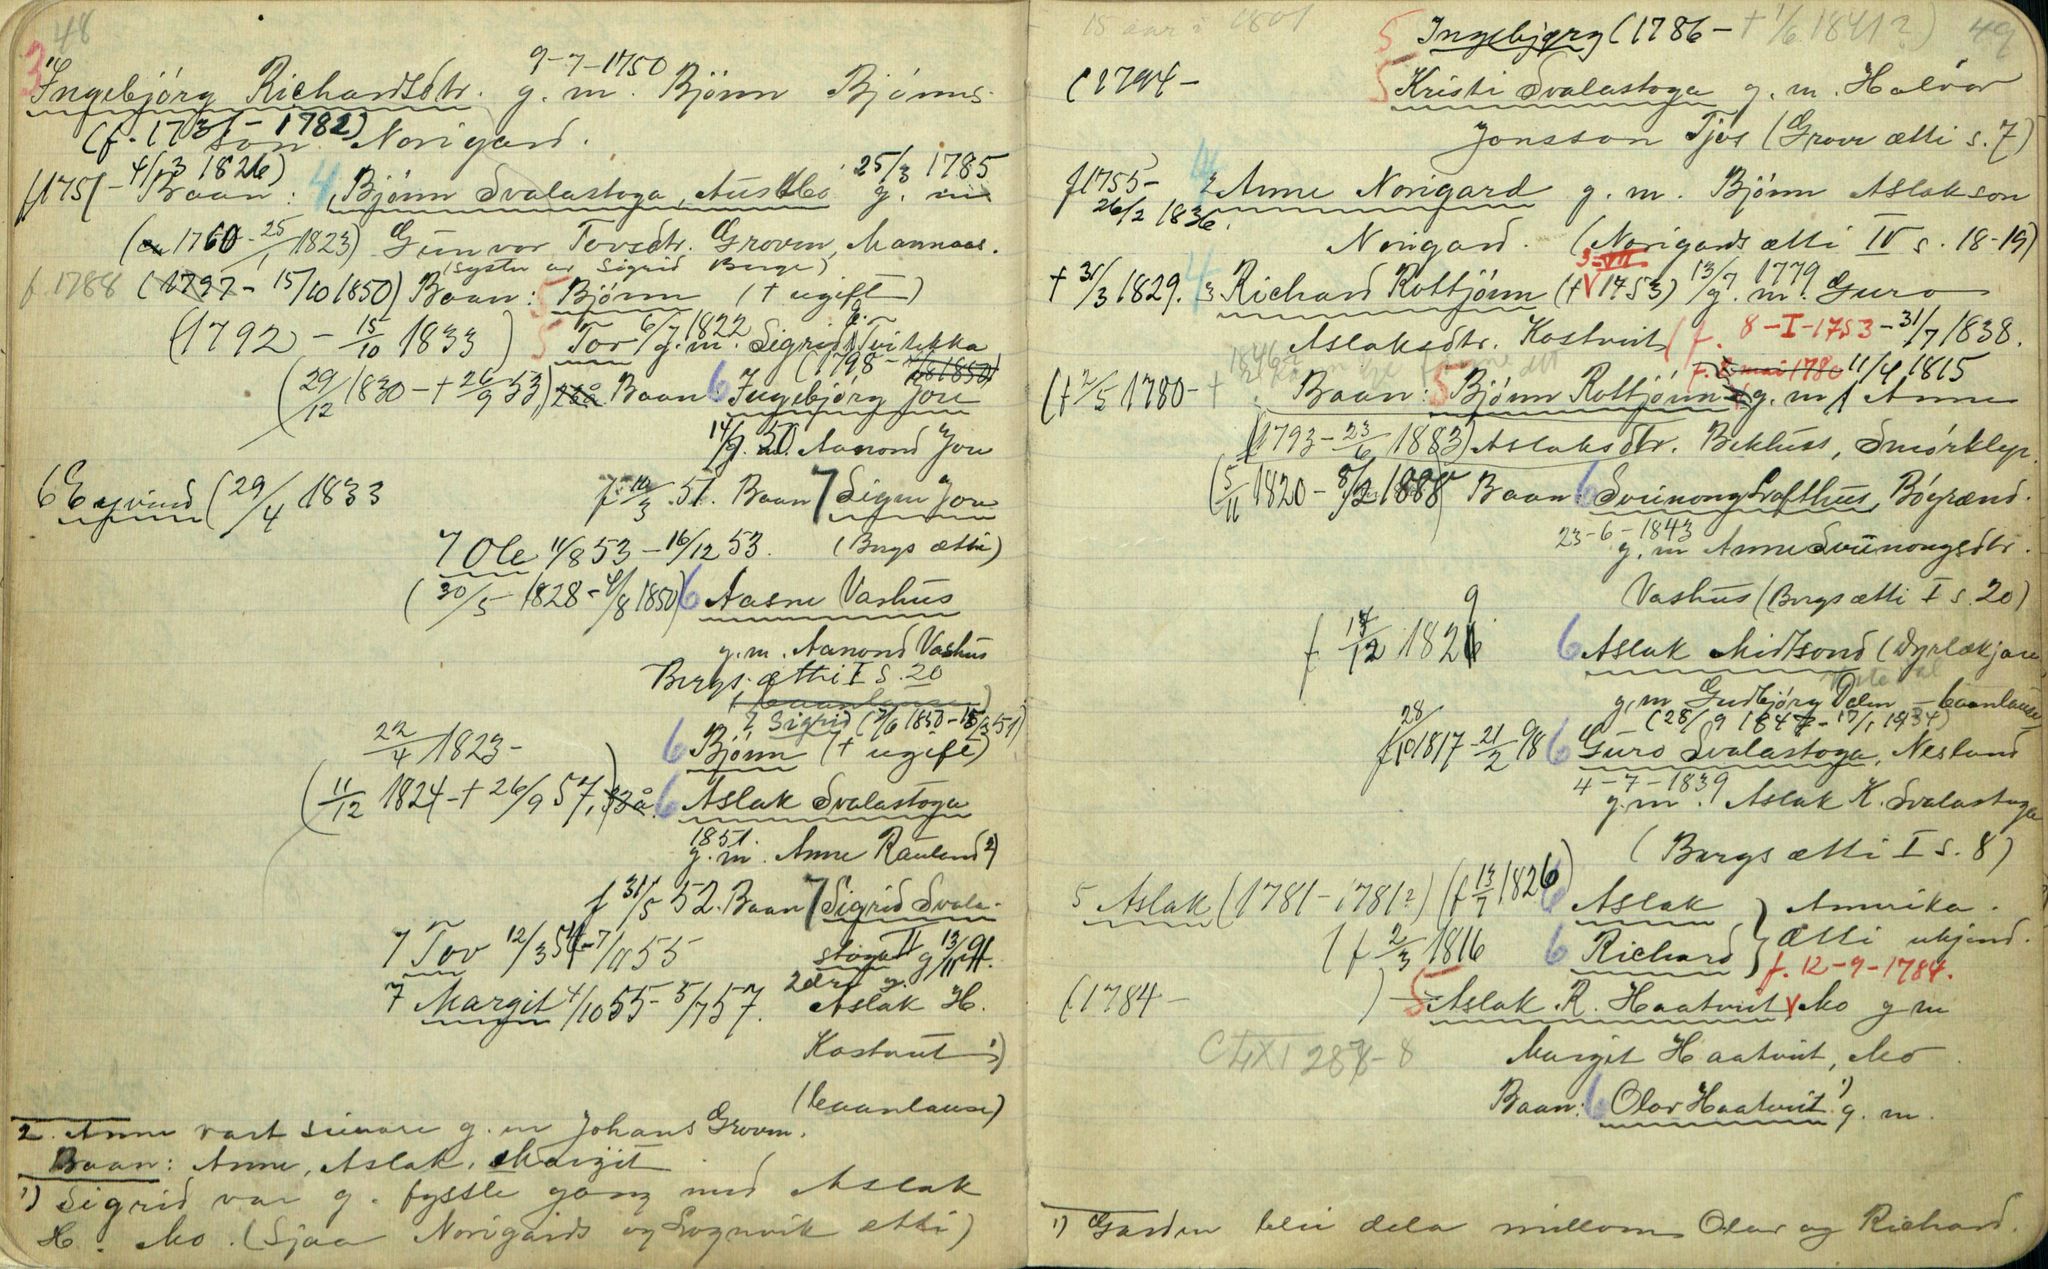 48
9-7-1750
3 Ingebjörg Richardsdtr. g. m. Bjönn Bjönns-
(f. 1731 - 1782) son Norigard.
f 1751 - 4/3 1826) Baan: 4 Bjönn Svalastoga, Austbö 25/3 1785 g. m
(1760 - 25/1 1823) Gunvor Tovsdtr. Groven, Mannaas.
(syster av Sigrid Berge)
f 1788 (1797 - 15/10 1850) Baan: 5 Bjönn († ugift)
(1792 - 15/10 1833) 5 Tov 6/7 1822 g. m. Sigrid Tveitekka
(1798 -
(29/12 1830 - † 26/9 53) Baan 6 Ingebjörg Jore
14/9 50 g. m. Aanond Jore
6 Eyvind (29/4 1833
f. 10/3 51. Baan 7 Signe Jore
7 Ole 11/8 53 - 16/12 53. (Bergs ætti)
(30/5 1828 - 4/8 1850) 6 Aasne Vashus
g. m. Aanond Vashus
Bergs ætti I s. 20
7 Sigrid
22/4 1823 - 6 Bjönn († ugift)
(11/12 1824 - † 26/9 57, 32 å) 6 Aslak Svalastoga
1851.
g. m. Anne Rauland 2)
f 31/5 52. Baan 7 Sigrid Svala-
7 Tov 12/3 54 - 7/11 55 stoga g 13/11 91.
7 Margit 4/10 55 - 5/7 57. 2dre g. Aslak H.
Kostveit 1)
(baanlause)
2. Anne vart sieare g. m Johans Groven.
Baan: Anne, Aslak, Margit
1) Sigrid var g. fysste gong med Aslak
H. Mo. (Sjaa Norigards og Lognvik ætti)
15 aar i 1801
5 Ingebjørg (1786 - † 1/6 1841?) 49
(1794 - 5 Kristi Svalastoga g. m. Halvor
Jonsson Tjos (Grove ætti s. 7)
f 1755 - 26/2 1836. 4 Anne Norigard g. m. Bjönn Aslakson
Norigard. (Norigards ætti IV s. 18-19)
† 31/3 1829. 4 Richard Rottjönn (1753) 13/7 1779 g. m. Guro
Aslaksdtr. Kostveit (f. 8-I-1753 - 31/7 1838.
f. 2 mai 1780 11/4 1815
(† 2/5 1780 - † Baan: 5 Bjönn Rottjönn g. m. Anne
(1793 - 23/6 1883) Aslaksdtr. Bekhus, Smörklepp.
(5/11 1820 - 8/2 1888) Baan: 6 Sveinong Lofthus, Bögrænd.
23-6-1843
g. m Anne Sveinongsdtr.
Vashus (Bergs ætti I s. 20)
f. 14/12 1829 6 Aslak Midtsond (Dyrlækjar
g. m Gudbjörg Dalen - baanlause
(28/9 1847 - 17/1 1934)
f 28/10 1817 - 21/2 98 6 Guro Svalastoga, Nesland
4-7-1839
g. m. Aslak K. Svalastoga
(Bergs ætti I s. 8)
5 Aslak (1781 - 1781?) (f 13/7 1826) 6 Aslak } Amerika.
(f 2/3 1816 6 Richard } ætti ukjend.
f. 12-9-1784.
(1784 - ) 5 Aslak R. Haatveit, Mo g m
CLXI 287-8 Margit Haatveit, Mo
Baan: 6 Olav Haatveit 1) g. m.
1) Garden blei dela millom Olav og Richard.